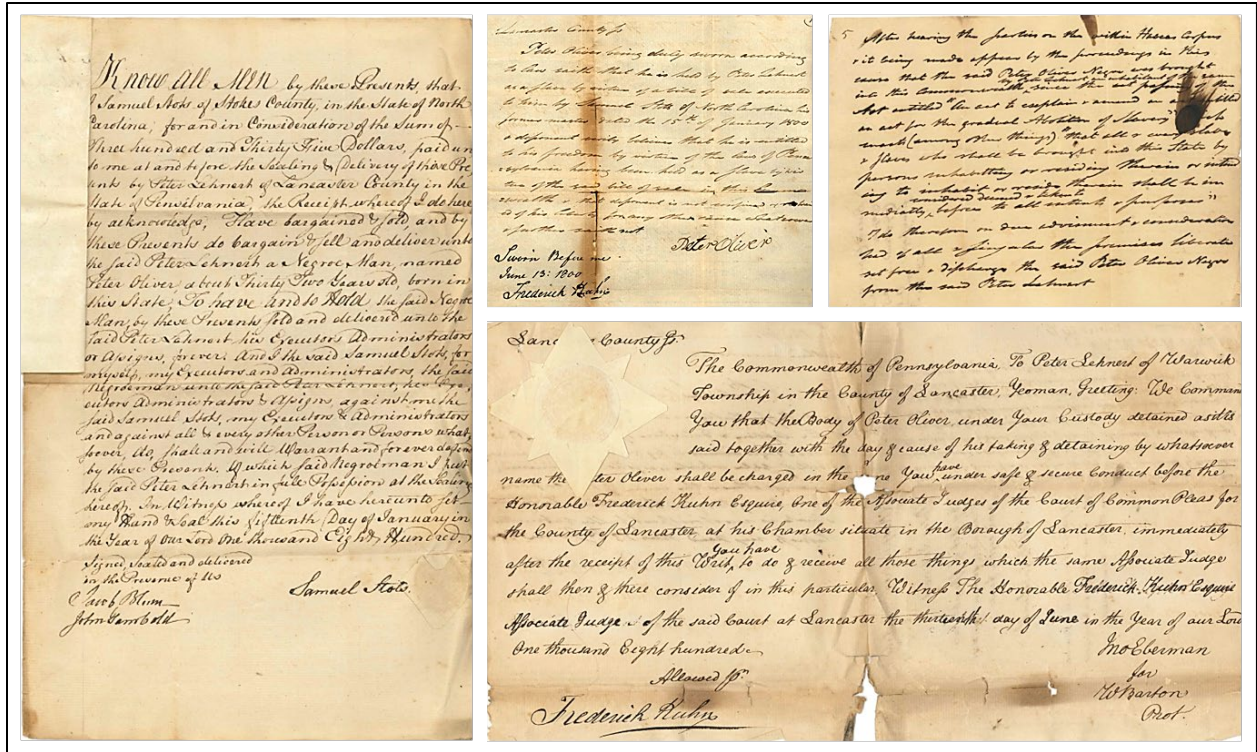 Know All Men by these Presents, that
I Samuel Stots of Stokes County, in the State of North
Carolina, for and in Consideration of the Sum of
Three hundred and Thirty Five Dollars, paid un
to me at and before the Sealing & Delivery of these Pre
sents by Peter Lehnert of Lancaster County in the
State of Pensilvania, the Receipt whereof I do here
by acknowledge, Have bargained & sold, and by
these Presents do bargain & sell and deliver unto
the said Peter Lehnert a Negroe Man, named
Peter Oliver, about Thirty Two Years old, born in
this State, To have and to Hold the said Negroe
Man, by these Presents sold and delivered unto the
said Peter Lehnert his Executors Administrators
or Assigns, forever. And I the said Samuel Stots, for
myself, my Executors and Administrators, the said
Negroeman unto the said Peter Lehnert, his Exe
cutors Administrators & Assigns, against me the
said Samuel Stots, my Executors & Administrators
and against all & every other Person or Persons what
soever, do, shall and will Warrant and forever defend
by these Presents. Of which said Negroeman I put
the said Peter Lehnert in full Possession at the Sealing
hereof. In Witness whereof I have hereunto set
my Hand & Seal this fifteenth Day of January in
the Year of our Lord One thousand Eight Hundred
Signed, sealed and delivered
in the Presence of Us
Samuel Stots.
Jacob Blum
John Gambold
Lancaster County ss
Peter Oliver being duly sworn according
to law saith that he is held by Peter Lehnert
as a slave by virtue of a bill of sale executed
to him by Samuel Stots of North Carolina his
former master dated the 15th of January 1800
to his freedom by virtue of the laws of Penn
sylvania having been held as a slave by vir
tue of the said bill of sale in this Common
wealth & that deponent is not
of his liberty for any other cause whatsoever
& further saith not
Peter Oliver
Sworn Before me
June 13: 1800
Frederick Kuhn
5
After hearing the parties on the within Habeas Corpus
& it being made appear by the proceedings in this
cause that the said Peter Oliver Negro was brought
into this commonwealth since the passing of the
Act entitled "An act to explain & amend an act entitled
an act for the gradual Abolition of Slavery"
(among other things) "that all & every slave
& slaves who shall be brought into this State by
persons inhabiting or residing therein or intend
ing to inhabit or reside therein shall be im
mediately considered deemed & taken to be free to all intents & purposes"
I do therefore on due & consideration
had of all & singular the premises liberate
set free & discharge the said Peter Oliver Negro
from the said Peter Lehnert
Lancaster County ss.
The Commonwealth of Pennsylvania, To Peter Lehnert of Warwick
Township in the County of Lancaster, Yeoman, Greeting: We Command
You that the Body of Peter Oliver, under Your Custody detained as it is
said together with the day & cause of his taking & detaining by whatsoever
name the Peter Oliver shall be charged in the You have under safe & secure Conduct before the
Honorable Frederick Kuhn Esquire, One of the Associate Judges of the Court of Common Pleas for
the County of Lancaster, at his Chamber situate in the Borough of Lancaster, immediately
after the receipt of this Writ, you have to do & receive all those things which the same Associate Judge
shall then & there consider of in this particular. Witness The Honorable Frederick Kuhn Esquire
Associate Judge of the said Court at Lancaster the thirteenth day of June in the Year of our Lord
One thousand Eight hundred
Allowed pr.
Frederick Kuhn
Jno Eberman
for
W Barton
Prot.